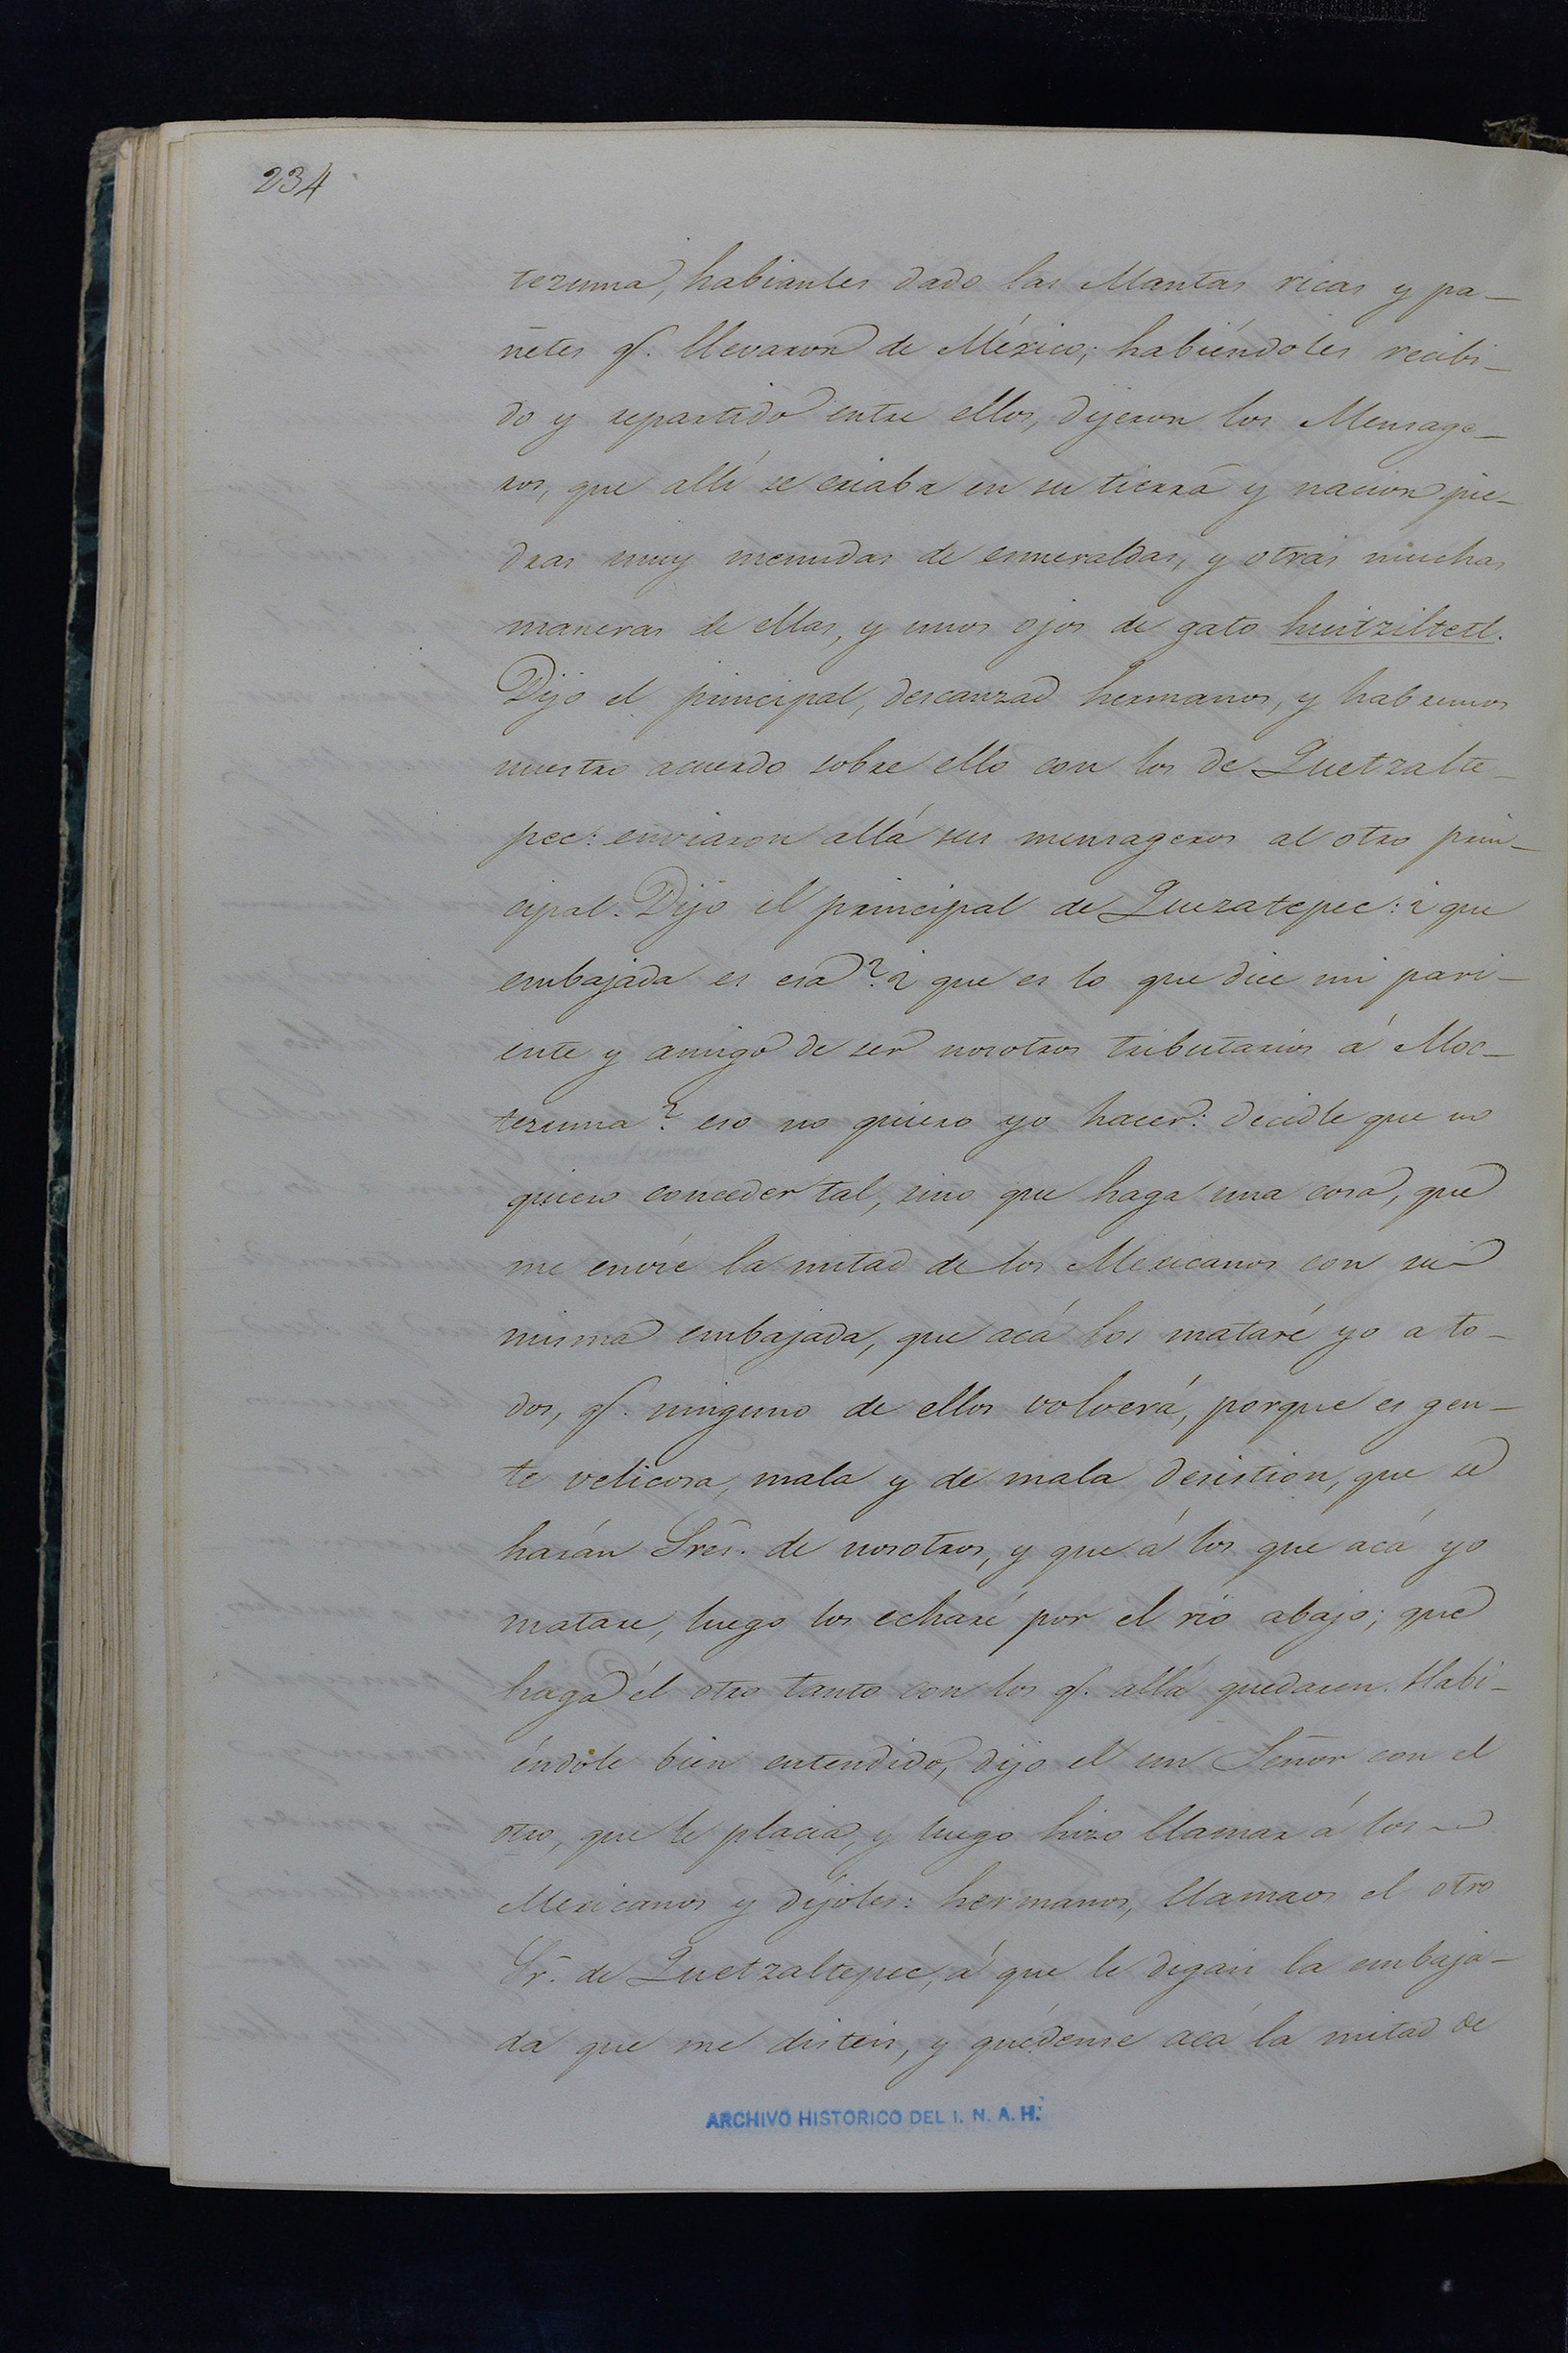 234
tezuma, habiantes dado las Mantas ricas y pa-
ñetes q. llevaron de México; habiéndoles recibi-
do y repartido entre ellos, dijeron los Mensage-
ros, que allí se criaba en su tierra y nacion pie-
dras muy menudas de esmeraldas, y otras muchas
maneras de ellas, y unos ojos de gato huitziltetl.
Dijo el principal, descanzad hermanos, y habremos
nuestro acuerdo sobre ello con los de Quetzalte-
pec: enviaron allá sus mensageros al otro prin-
cipal. Dijo el principal de Quezatepec: ¿que
embajada es esa? ¿que es lo que dice mi pari-
ente y amigo de ser nosotros tributarios á Moc-
tezuma? eso no quiero yo hacer: decidle que no
quiero conceder tal, sino que haga una cosa, que
me envíe la mitad de los Mexicanos con su
misma embajada, que acá los mataré yo a to-
dos, q. ninguno de ellos volverá, porque es gen-
te velicosa, mala y de mala desistion, que se
harán Sres. de nosotros, y que á los que acá yo
matare, luego los echaré por el rio abajo; que
haga él otro tanto con los q. allá quedaren. Habi-
éndole bien entendido, dijo el un Señor con el
otro, que le placia, y luego hizo llamar á los
Mexicanos y díjoles: hermanos, llamaos el otro
Sr. de Quetzaltepec, á que le digais la embaja-
da que me disteis, y quédense acá la mitad de
ARCHIVO HISTORICO DEL I. N. A. H.